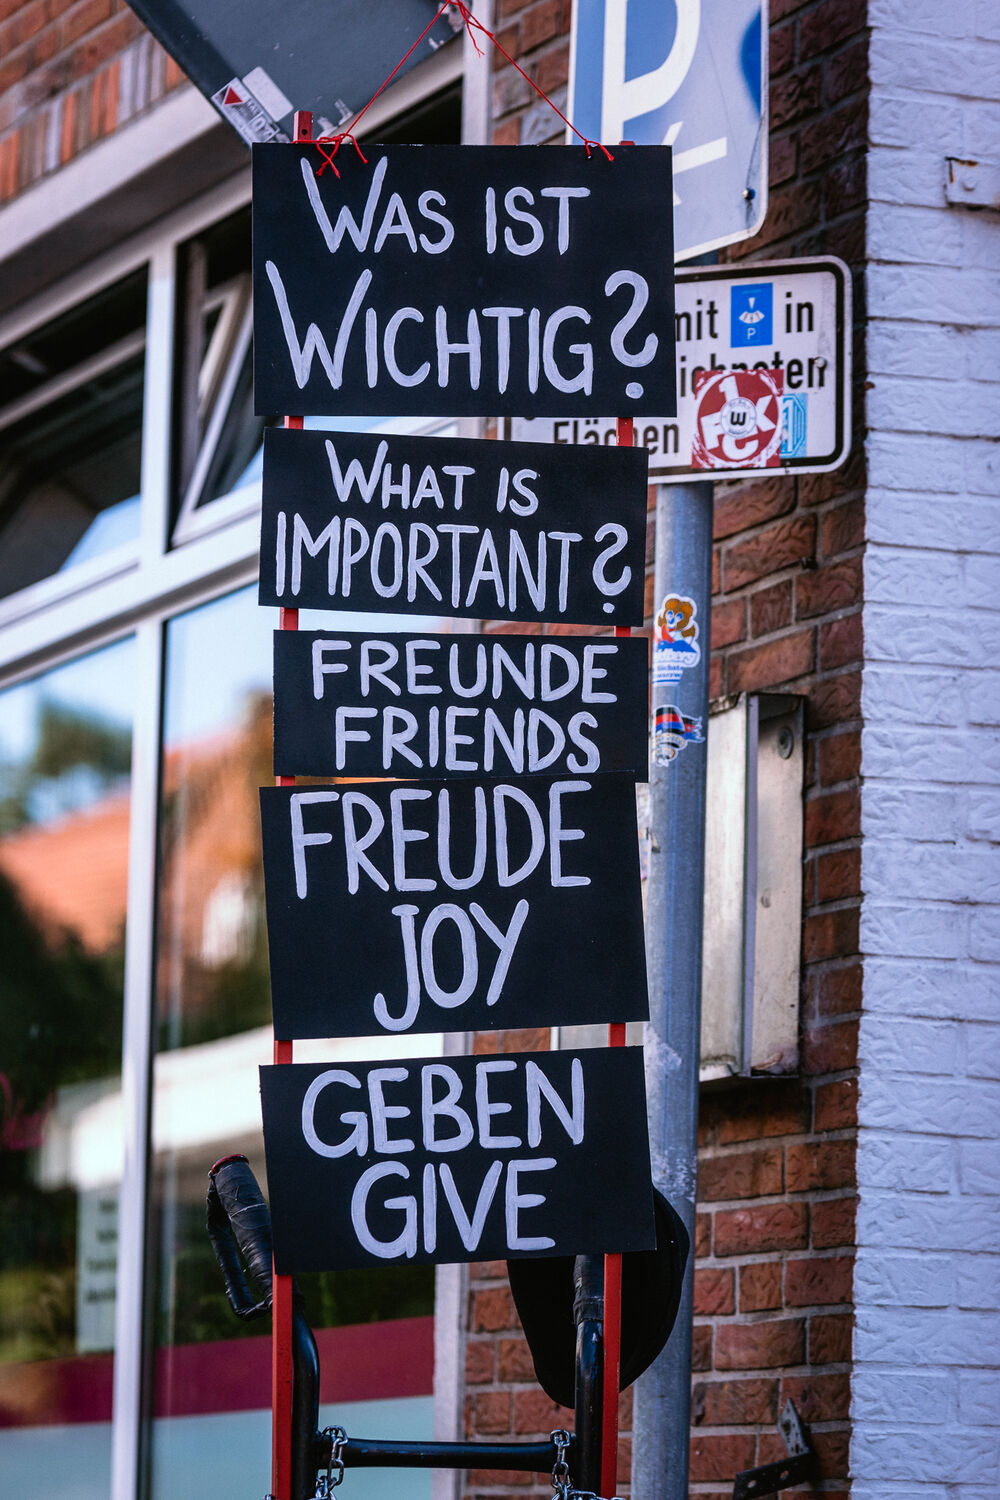 WAS IST
WICHTIG?
WHAT IS
IMPORTANT?
FREUNDE
FRIENDS
FREUDE
JOY
GEBEN
GIVE
P
mit P in
Flächen
W